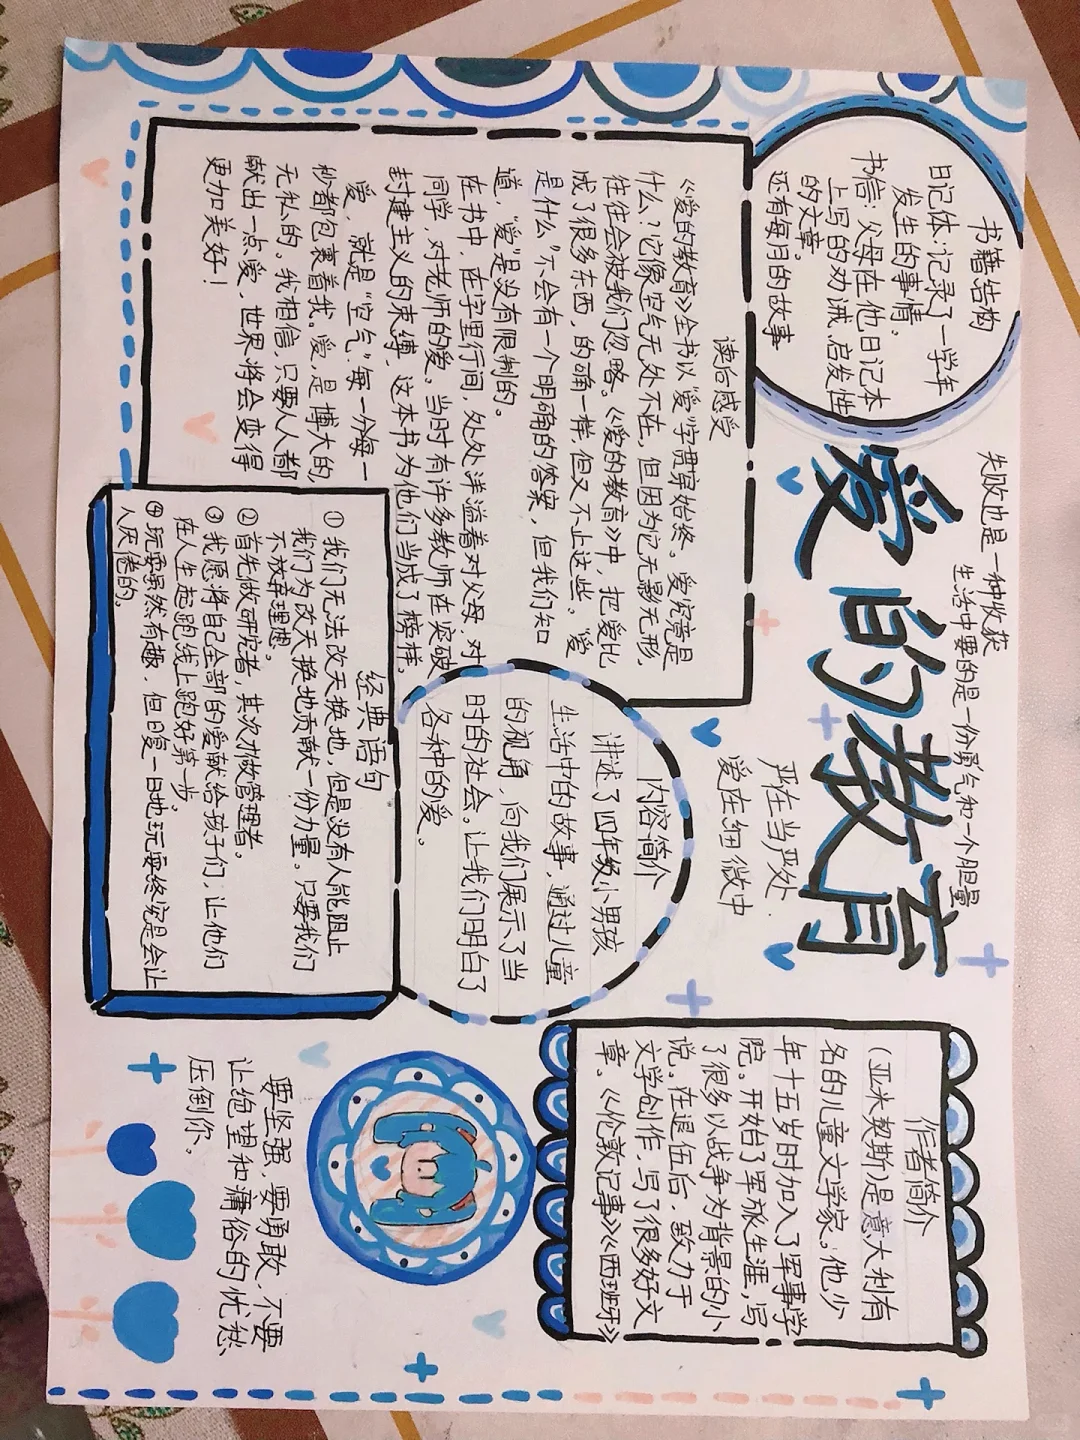 失败也是一种收获
生活中要的是一份勇气和一个胆量
爱的教育
严在当严处.
爱在细微中
书籍结构
日记体:记录了一学年
发生的事情。
书信:父母在他日记本
上写的劝诫,启发性
的文章。
还有每月的故事
读后感受
《爱的教育》全书以“爱”字贯穿始终。爱究竟是
什么?它像空气无处不在,但因为它无影无形,
往往会被我们忽略。《爱的教育》中,把爱比
成了很多东西,的确一样,但又不止这些。爱
是什么”不会有一个明确的答案,但我们知
道,“爱”是没有限制的。
在书中,在字里行间,处处洋溢着对父母、对
同学,对老师的爱。当时有许多教师在突破
封建主义的束缚,这本书为他们当成了榜样,
爱,就是“空气”每一分每一
秒都包裹着我。爱,是博大的,
无私的。我相信,只要人人都
献出一点爱,世界将会变得
更加美好!
内容简介
讲述了四年级小男孩
生活中的故事,通过儿童
的视角,向我们展示了当
时的社会。让我们明白了
各种的爱。
经典语句
① 我们无法改天换地,但是没有人能阻止
我们为改天换地贡献一份力量。只要我们
不放弃理想。
② 首先做研究者,其次才做管理者。
③ 我愿将自己全部的爱献给孩子们,让他们
在人生起跑线上跑好第一步。
④ 玩耍虽然有趣,但日复一日地玩耍终究是会让
人厌倦的。
作者简介
(亚米契斯)是意大利有
名的儿童文学家。他少
年十五岁时加入了军事学
院。开始了军旅生涯,写
了很多以战争为背景的小
说。在退伍后,致力于
文学创作,写了很多好文
章。《伦敦记事》《西班牙》
要坚强,要勇敢,不要
让绝望和庸俗的忧愁
压倒你。